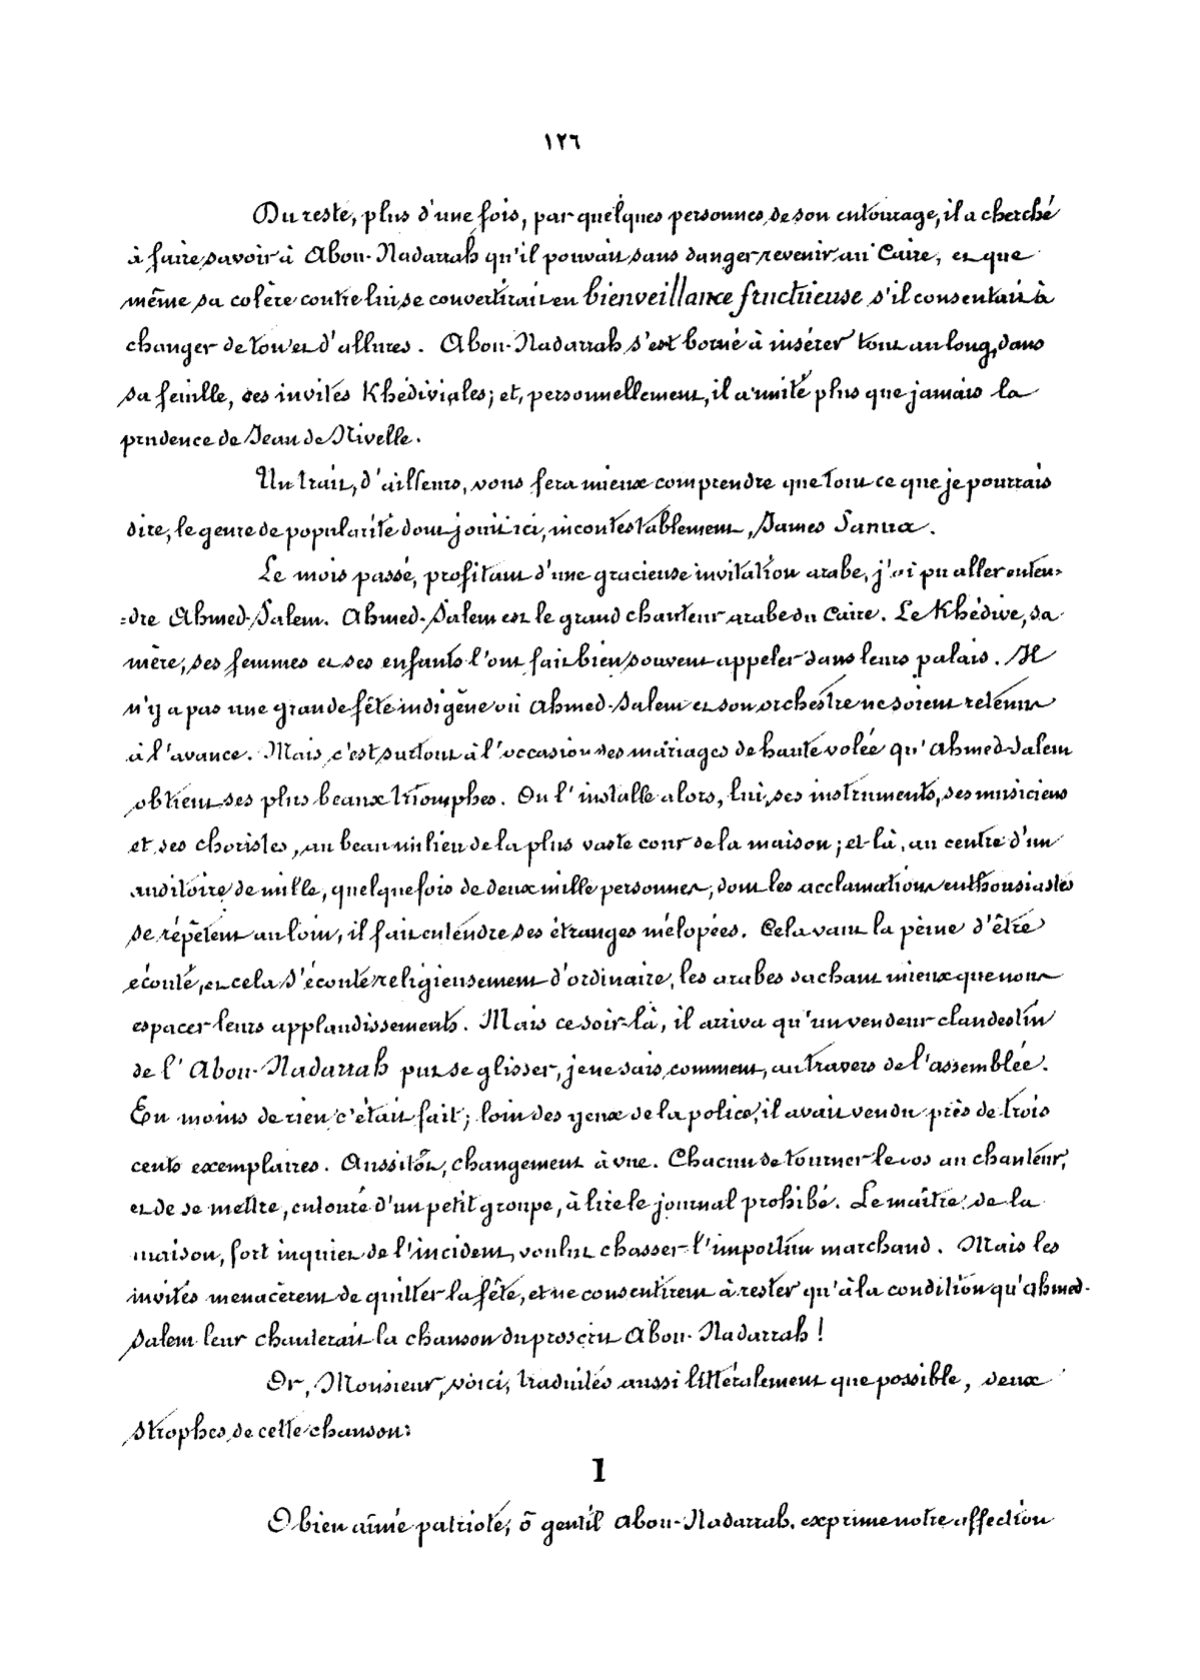 ١٢٦
Du reste, plus d'une fois, par quelques personnes de son entourage, il a cherché
à faire savoir à Abou-Naddarrah qu'il pouvait sans danger revenir au Caire, et que
même sa colère contre lui se convertirait en bienveillance fructueuse s'il consentait à
changer de ton et d'allures. Abou-Naddarrah s'est borné à insérer tout au long, dans
sa feuille, ces invités Khédiviales; et, personnellement, il a imité plus que jamais la
prudence de Jean de Nivelle.
Un trait, d'ailleurs, vous fera mieux comprendre que tout ce que je pourrais
dire, le genre de popularité dont jouit ici, incontestablement, James Sanua.
Le mois passé, profitant d'une gracieuse invitation arabe, j'ai pu aller enten-
-dre Ahmed-Salem. Ahmed-Salem est le grand chanteur arabe du Caire. Le Khédive, sa
mère, ses femmes et ses enfants l'ont fait bien souvent appeler dans leurs palais. Il
n'y a pas une grande fête indigène où Ahmed-Salem et son orchestre ne soient retenus
à l'avance. Mais c'est surtout à l'occasion des mariages de haute volée qu'Ahmed-Salem
obtient ses plus beaux triomphes. On l'installe alors, lui, ses instruments, ses musiciens
et ses choristes, au beau milieu de la plus vaste cour de la maison; et là, au centre d'un
auditoire de mille, quelquefois de deux mille personnes, dont les acclamations enthousiastes
se répètent au loin, il fait entendre ses étranges mélopées. Cela vaut la peine d'être
écouté, et cela s'écoute religieusement d'ordinaire, les arabes sachant mieux que nous
espacer leurs applaudissements. Mais ce soir-là, il arriva qu'un vendeur clandestin
de l'Abou-Nadarrah put se glisser, je ne sais comment, au travers de l'assemblée.
En moins de rien c'était fait; loin des yeux de la police, il avait vendu près de trois
cents exemplaires. Aussitôt, changement à vue. Chacun de tourner le dos au chanteur,
et de se mettre, entouré d'un petit groupe, à lire le journal prohibé. Le maître de la
maison, fort inquiet de l'incident, voulut chasser l'importun marchand. Mais les
invités menacèrent de quitter la fête, et ne consentirent à rester qu'à la condition qu'Ahmed-
Salem leur chanterait la chanson du proscrit Abou-Nadarrah!
Or, Monsieur, voici, traduites aussi littéralement que possible, deux
strophes de cette chanson:
1
O bien aimé patriote, ô gentil Abou-Nadarrah, exprime notre affection